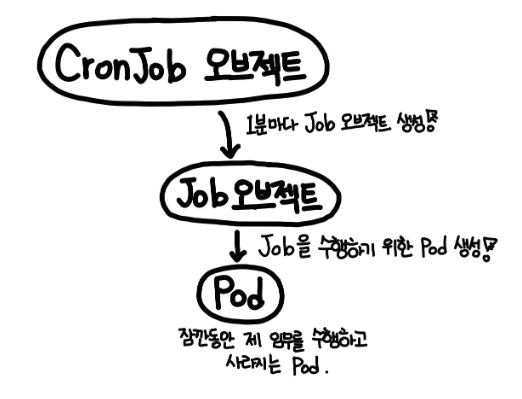 CronJob 오브젝트
1분마다 Job 오브젝트 생성!
Job 오브젝트
Job을 수행하기 위한 Pod 생성!
Pod
잠깐동안 제 임무를 수행하고
사라지는 Pod.